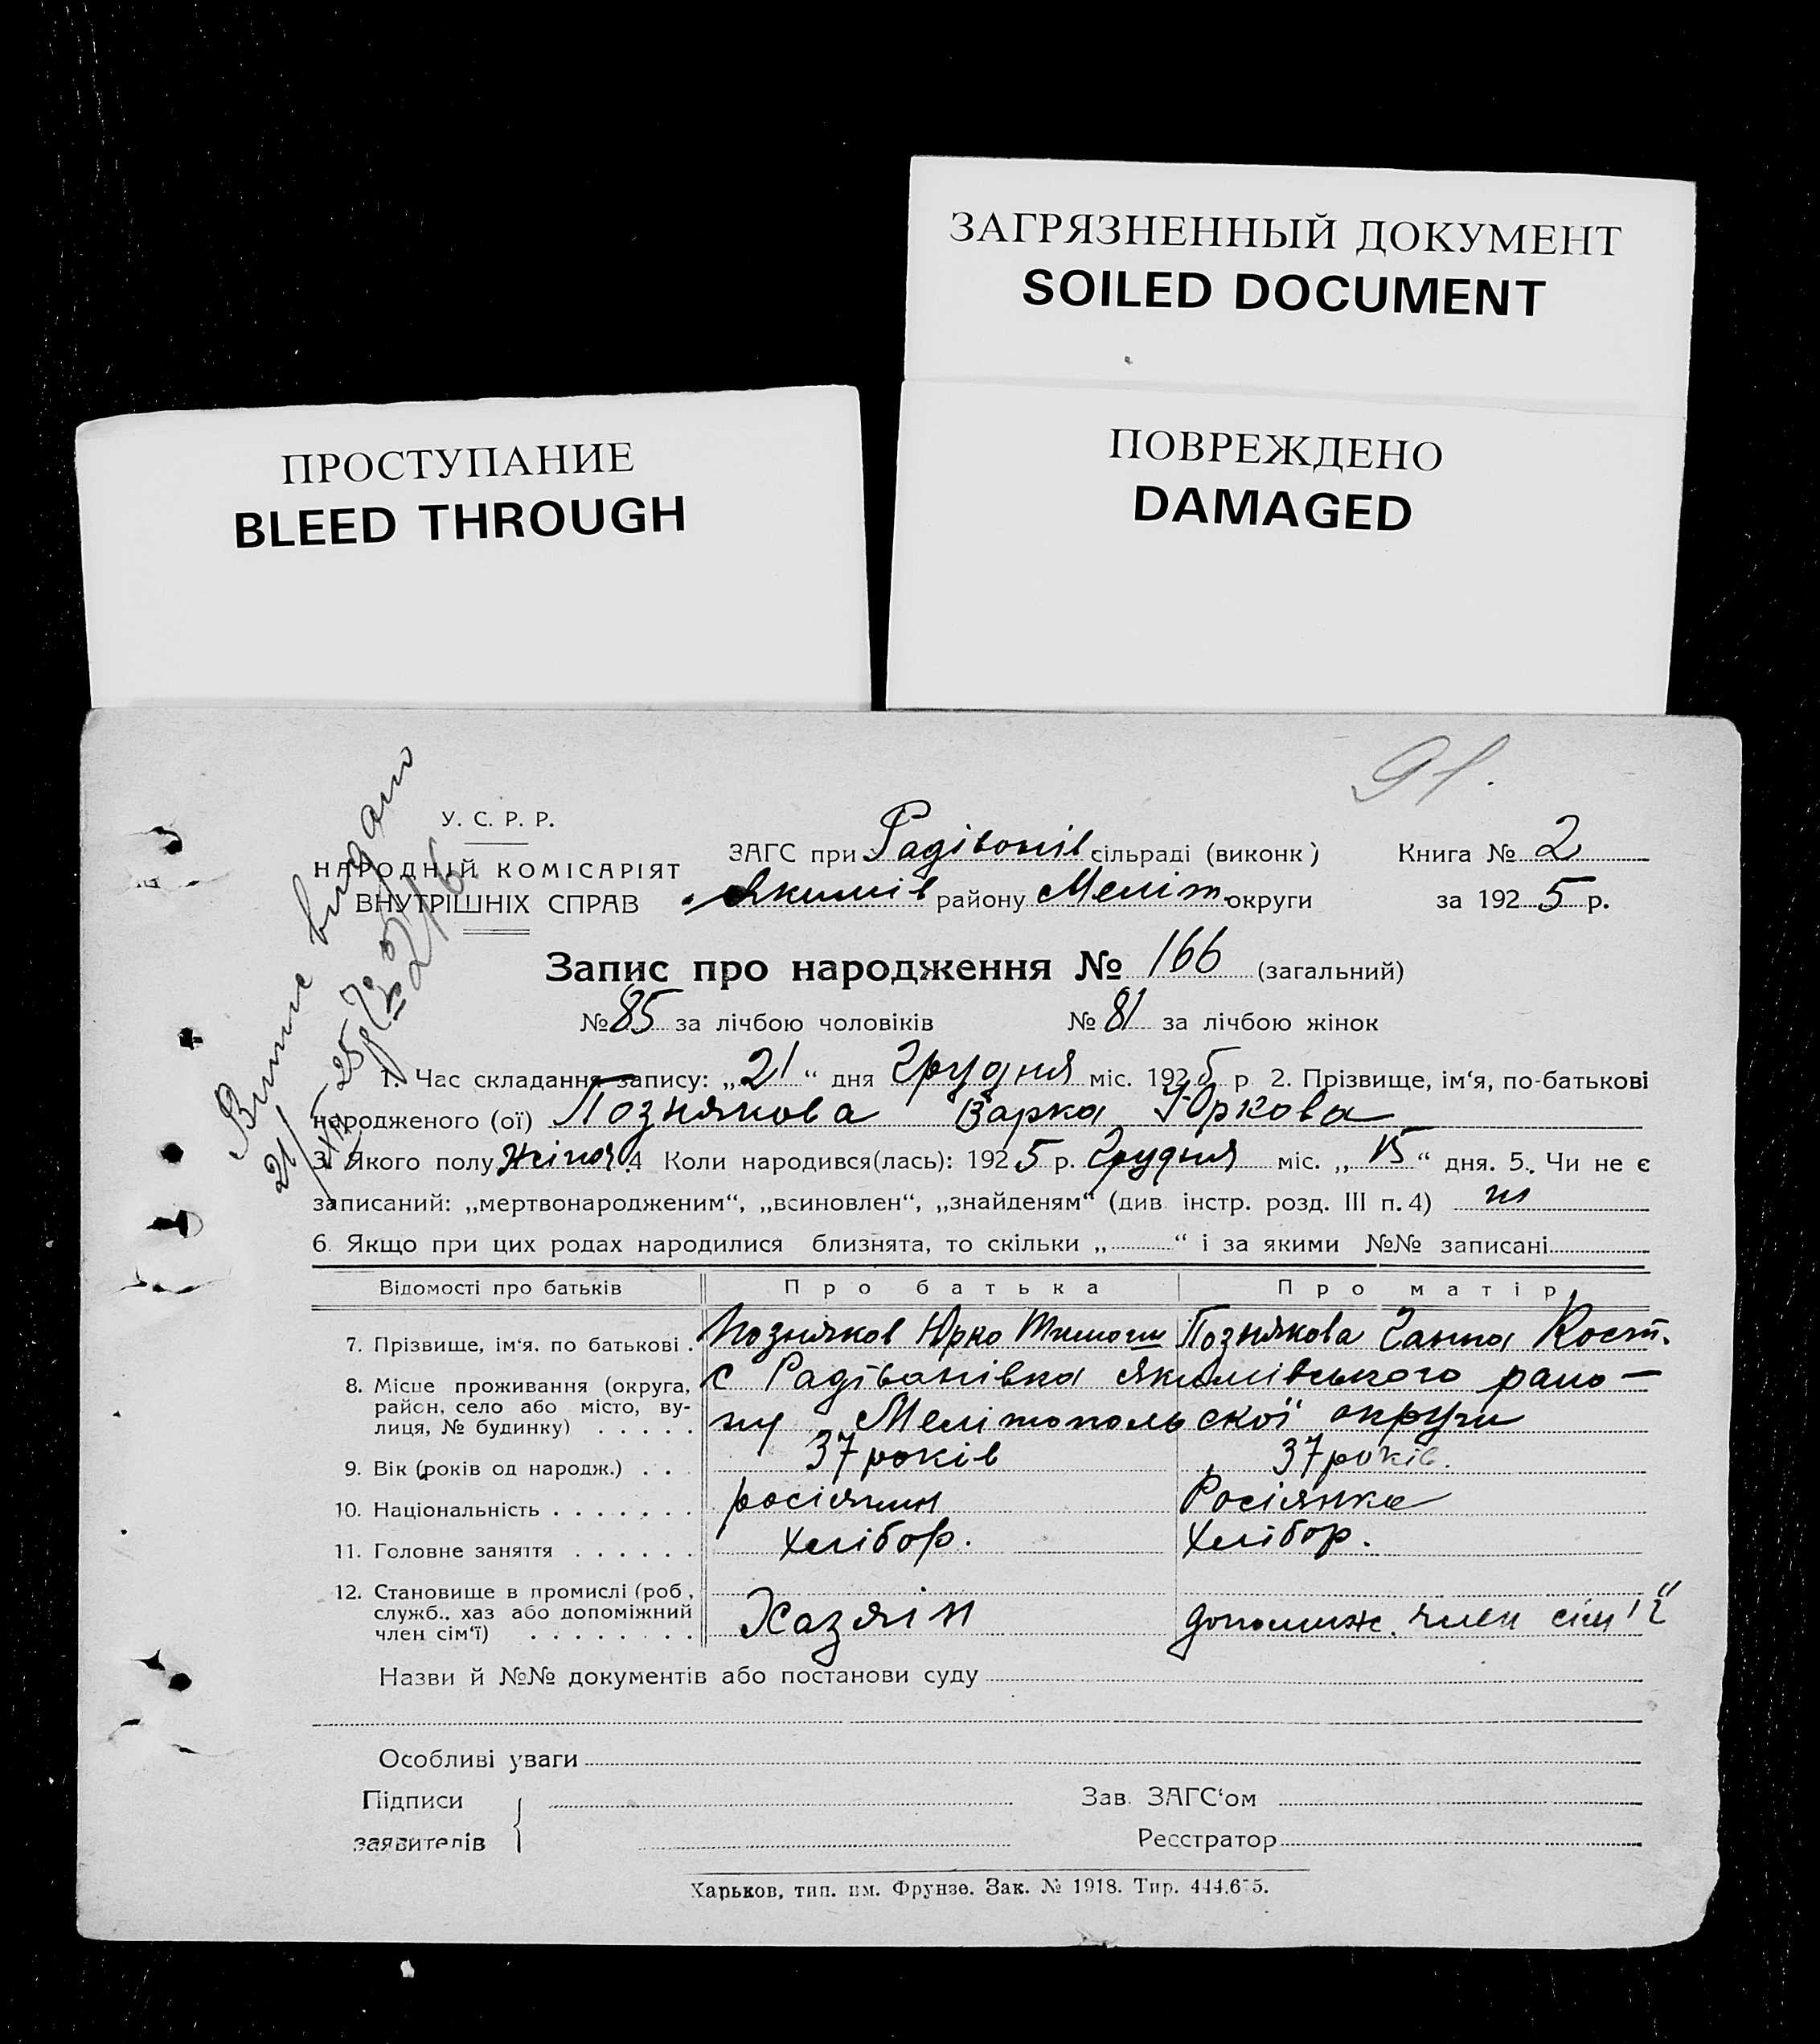 ЗАГРЯЗНЕННЫЙ ДОКУМЕНТ
SOILED DOCUMENT
ПРОСТУПАНИЕ
BLEED THROUGH
ПОВРЕЖДЕНО
DAMAGED
91.
У. С. Р. Р.
НАРОДНІЙ КОМІСАРІЯТ
ВНУТРІШНІХ СПРАВ
ЗАГС при Радівонів сільраді (виконк)
Якимів району Меліт. округи
Книга № 2
за 1925 р.
видано
21/XII 25 р.
Запис про народження № 166 (загальний)
№ 85 за лічбою чоловіків № 81 за лічбою жінок
1. Час складання запису: „21“ дня Грудня міс. 1925 р 2. Прізвище, ім‘я, по-батькові
народженого (ої) Познякова Варка Юркова
3. Якого полу жіноч. 4 Коли народився(лась): 1925 р. Грудня міс. „15“ дня. 5. Чи не є
записаний: „мертвонародженим“, „всиновлен“, „знайденям“ (див. інстр. розд. III п. 4) ні
6. Якщо при цих родах народилися близнята, то скільки „ “ і за якими №№ записані
Відомості про батьків Про батька Про матір
7. Прізвище, ім‘я. по батькові . Позняков Юрко Тимоги Познякова Ганна Кост.
8. Місце проживання (округа, район, село або місто, вулиця, № будинку) . . . . . с Радівонівка Якимівського рано-
ну Мелітопольської округи
9. Вік (років од народж.) . . . 37 років 37 років.
10. Національність . . . . . . . росіянин Росіянка
11. Головне заняття . . . . . . хлібор. хлібор.
12. Становище в промислі (роб., служб., хаз або допоміжний член сім‘ї) . . . . . . . . Хазяін допомиж. член сім'ї
Назви й №№ документів або постанови суду
Особливі уваги
Підписи заявителів
Зав. ЗАГС‘ом
Реєстратор
Харьков, тип. им. Фрунзе. Зак. № 1918. Тир. 444.675.